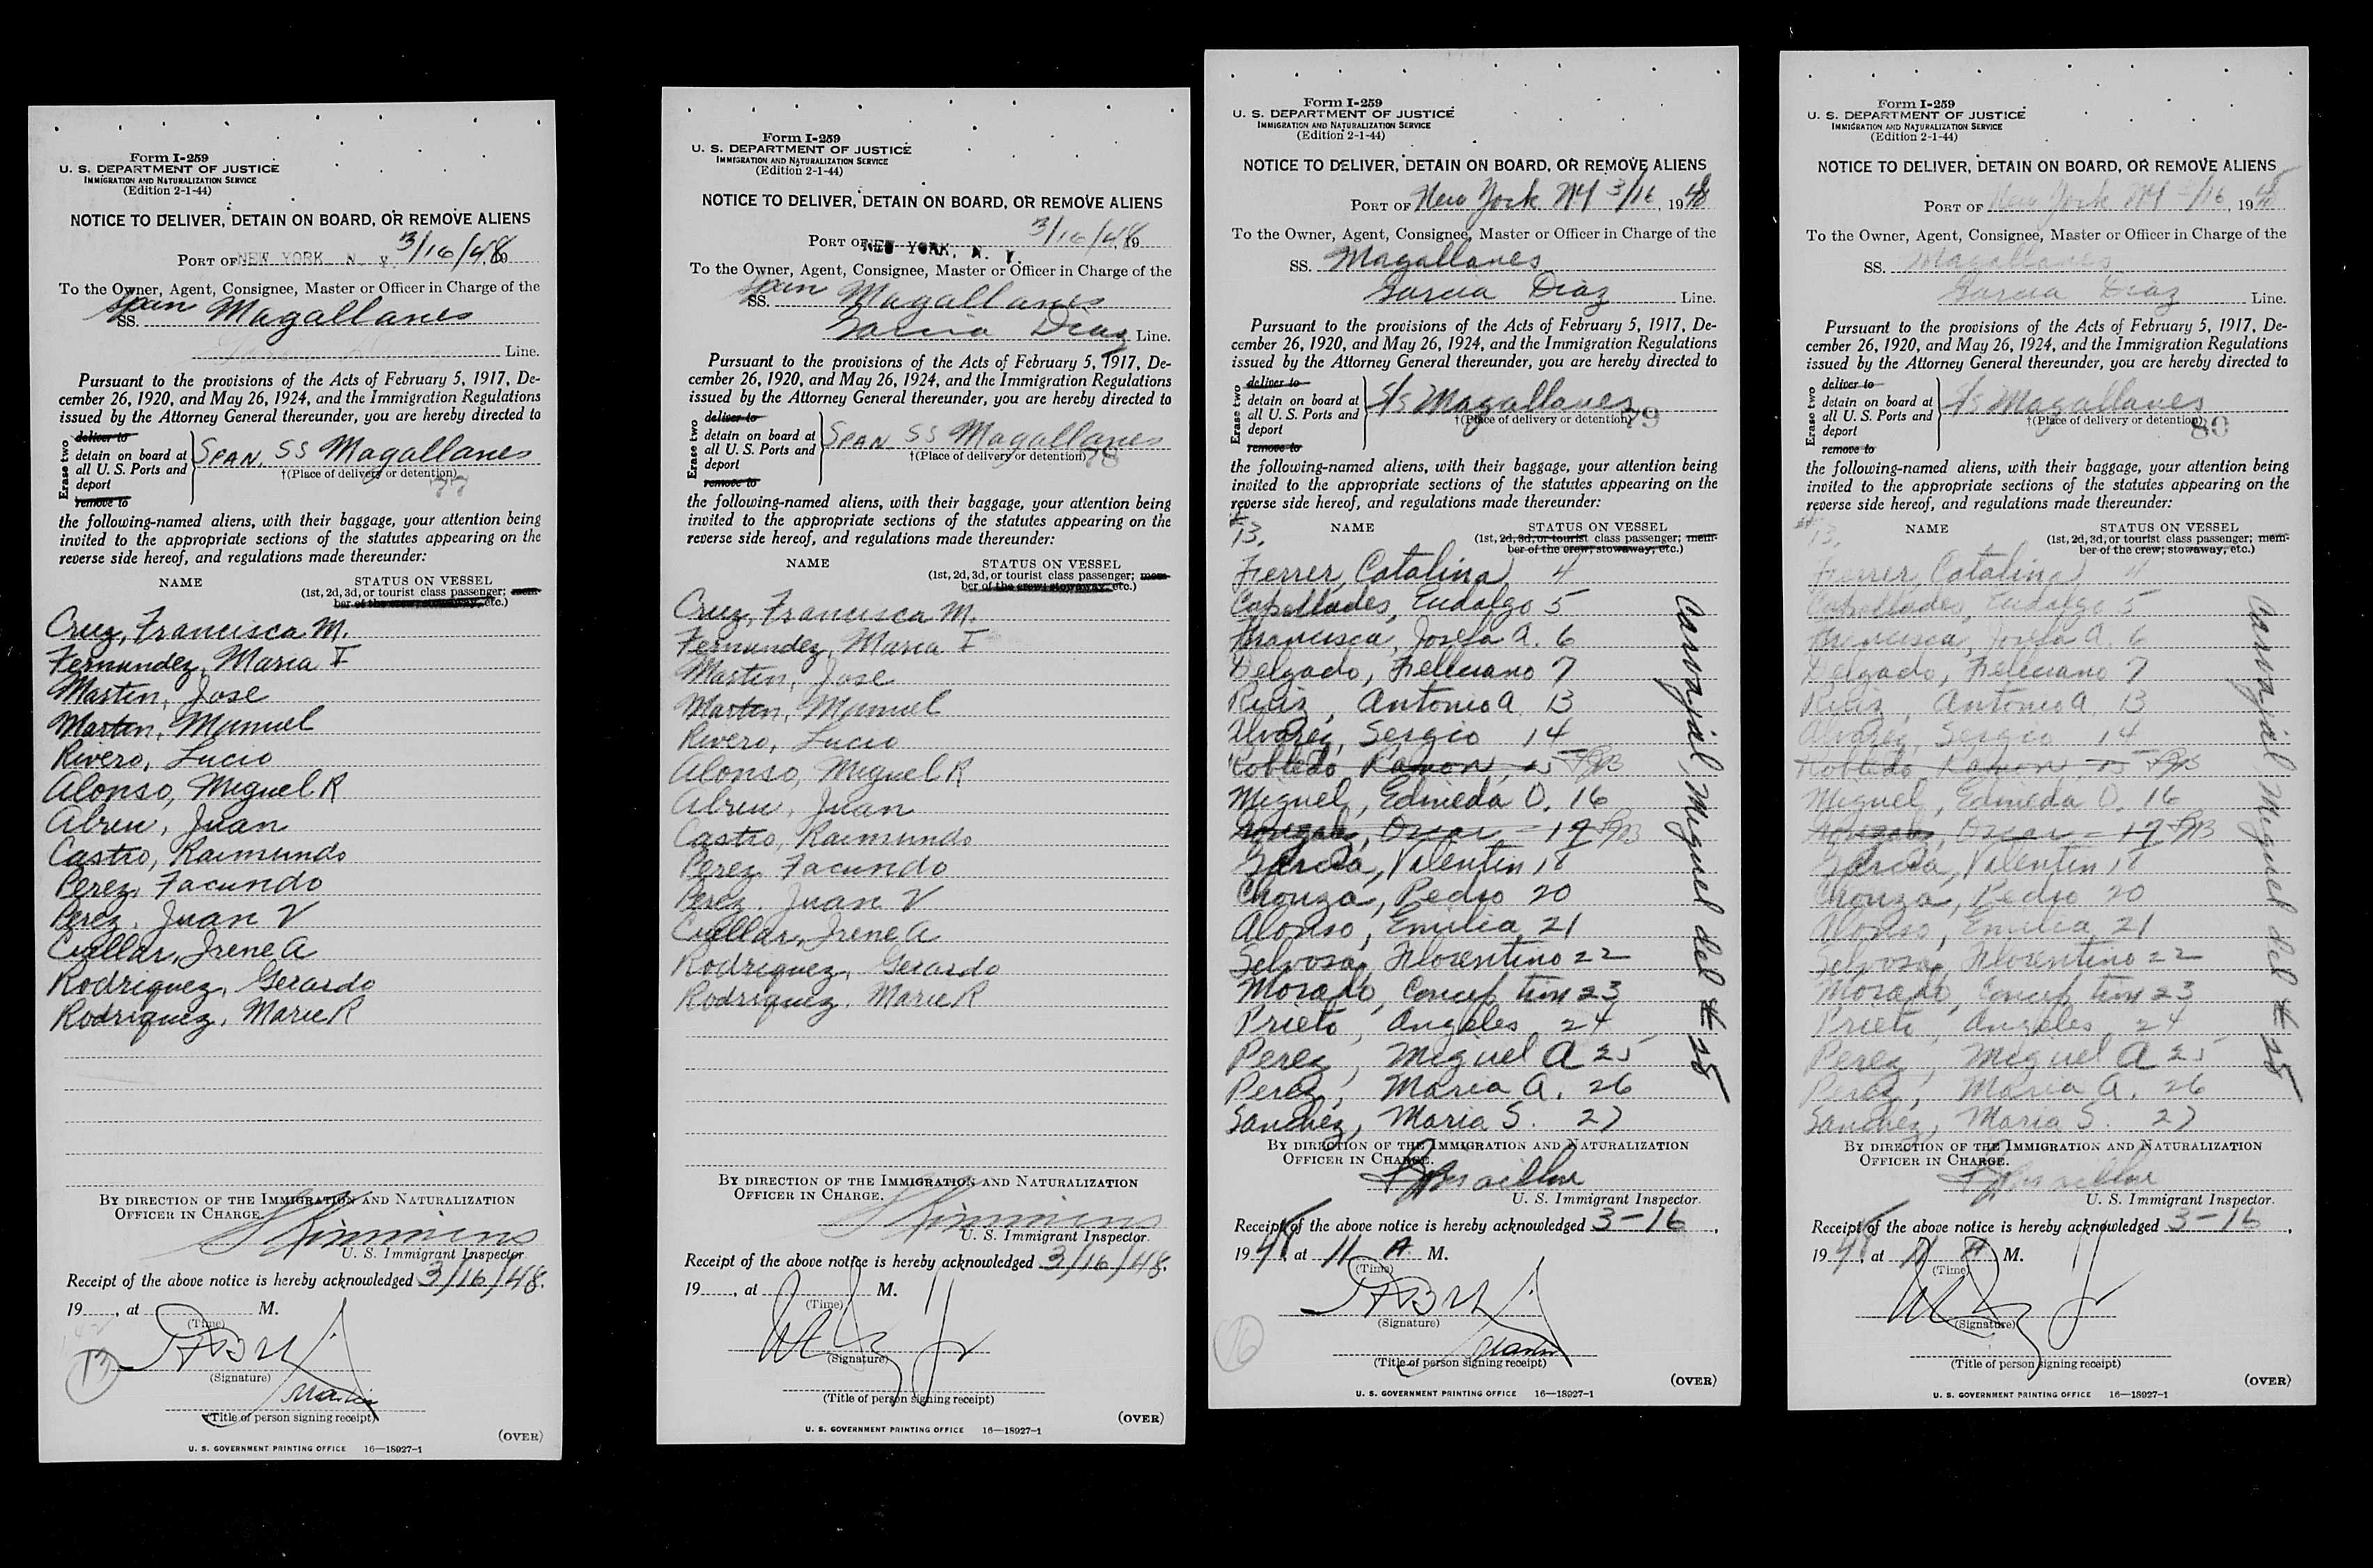 Form I-259
U. S. DEPARTMENT OF JUSTICE
IMMIGRATION AND NATURALIZATION SERVICE
(Edition 2-1-44)
NOTICE TO DELIVER, DETAIN ON BOARD, OR REMOVE ALIENS
PORT OF NEW YORK, N. Y. 3/16/48 19
To the Owner, Agent, Consignee, Master or Officer in Charge of the
Span SS. Magallanes
Line.
Pursuant to the provisions of the Acts of February 5, 1917, De-
cember 26, 1920, and May 26, 1924, and the Immigration Regulations
issued by the Attorney General thereunder, you are hereby directed to
Erase two
deliver to
detain on board at
all U. S. Ports and
deport
remove to
SPAN. SS Magallanes
†(Place of delivery or detention)
77
the following-named aliens, with their baggage, your attention being
invited to the appropriate sections of the statutes appearing on the
reverse side hereof, and regulations made thereunder:
NAME STATUS ON VESSEL
(1st, 2d, 3d, or tourist class passenger; mem-
ber of the crew; stowaway, etc.)
Cruz, Francisca M.
Fernandez, Maria F
Martin, Jose
Martin, Manuel
Rivero, Lucio
Alonso, Miguel R
Abreu, Juan
Castro, Raimundo
Perez, Facundo
Perez, Juan V
Cuellar, Irene A
Rodriquez, Gerardo
Rodriquez, Marie R
BY DIRECTION OF THE IMMIGRATION AND NATURALIZATION
OFFICER IN CHARGE.
U. S. Immigrant Inspector.
Receipt of the above notice is hereby acknowledged 3/16/48.
19 , at M.
(Time)
13
(Signature)
(Title of person signing receipt)
(OVER)
U. S. GOVERNMENT PRINTING OFFICE 16—18927-1
Form I-259
U. S. DEPARTMENT OF JUSTICE
IMMIGRATION AND NATURALIZATION SERVICE
(Edition 2-1-44)
NOTICE TO DELIVER, DETAIN ON BOARD, OR REMOVE ALIENS
PORT OF NEW YORK, N. Y. 3/16/48 19
To the Owner, Agent, Consignee, Master or Officer in Charge of the
Span SS. Magallanes
Garcia Diaz Line.
Pursuant to the provisions of the Acts of February 5, 1917, De-
cember 26, 1920, and May 26, 1924, and the Immigration Regulations
issued by the Attorney General thereunder, you are hereby directed to
Erase two
deliver to
detain on board at
all U. S. Ports and
deport
remove to
SPAN. SS Magallanes
†(Place of delivery or detention)
78
the following-named aliens, with their baggage, your attention being
invited to the appropriate sections of the statutes appearing on the
reverse side hereof, and regulations made thereunder:
NAME STATUS ON VESSEL
(1st, 2d, 3d, or tourist class passenger; mem-
ber of the crew; stowaway, etc.)
Cruz, Francisca M.
Fernandez, Maria F
Martin, Jose
Martin, Manuel
Rivero, Lucio
Alonso, Miguel R
Abreu, Juan
Castro, Raimundo
Perez, Facundo
Perez, Juan V
Cuellar, Irene A
Rodriquez, Gerardo
Rodriquez, Marie R
BY DIRECTION OF THE IMMIGRATION AND NATURALIZATION
OFFICER IN CHARGE.
U. S. Immigrant Inspector.
Receipt of the above notice is hereby acknowledged 3/16/48.
19 , at M.
(Time)
(Signature)
(Title of person signing receipt)
(OVER)
U. S. GOVERNMENT PRINTING OFFICE 16—18927-1
Form I-259
U. S. DEPARTMENT OF JUSTICE
IMMIGRATION AND NATURALIZATION SERVICE
(Edition 2-1-44)
NOTICE TO DELIVER, DETAIN ON BOARD, OR REMOVE ALIENS
PORT OF New York NY 3/16, 1948
To the Owner, Agent, Consignee, Master or Officer in Charge of the
SS. Magallanes
Garcia Diaz Line.
Pursuant to the provisions of the Acts of February 5, 1917, De-
cember 26, 1920, and May 26, 1924, and the Immigration Regulations
issued by the Attorney General thereunder, you are hereby directed to
Erase two
deliver to
detain on board at
all U. S. Ports and
deport
remove to
S/S Magallanes
†(Place of delivery or detention)
79
the following-named aliens, with their baggage, your attention being
invited to the appropriate sections of the statutes appearing on the
reverse side hereof, and regulations made thereunder:
# 13. NAME STATUS ON VESSEL
(1st, 2d, 3d, or tourist class passenger; mem-
ber of the crew; stowaway, etc.)
Ferrer, Catalina 4
Capellades, Eudalgo 5
Francisca, Josefa A. 6
Delgado, Feliciano 7
Ruiz, Antonio A. 13
Alvarez, Sergio 14
Robledo Ramon, 15
Miguel, Edineda O. 16
Oscar - 17
Garcia, Valentin 18
Chouza, Pedro 20
Alonso, Emilia 21
Florentino 22
Concep tion 23
Prieto, Angeles 24
Perez, Miguel A 25
Perez, Maria A. 26
Sanchez, Maria S. 27
Carvajial, Miguel del # 25
BY DIRECTION OF THE IMMIGRATION AND NATURALIZATION
OFFICER IN CHARGE.
U. S. Immigrant Inspector.
Receipt of the above notice is hereby acknowledged 3-16,
1948, at 11 A. M.
(Time)
16
(Signature)
(Title of person signing receipt)
(OVER)
U. S. GOVERNMENT PRINTING OFFICE 16—18927-1
Form I-259
U. S. DEPARTMENT OF JUSTICE
IMMIGRATION AND NATURALIZATION SERVICE
(Edition 2-1-44)
NOTICE TO DELIVER, DETAIN ON BOARD, OR REMOVE ALIENS
PORT OF New York NY 3/16, 1948
To the Owner, Agent, Consignee, Master or Officer in Charge of the
SS. Magallanes
Garcia Diaz Line.
Pursuant to the provisions of the Acts of February 5, 1917, De-
cember 26, 1920, and May 26, 1924, and the Immigration Regulations
issued by the Attorney General thereunder, you are hereby directed to
Erase two
deliver to
detain on board at
all U. S. Ports and
deport
remove to
S/S Magallanes
†(Place of delivery or detention)
80
the following-named aliens, with their baggage, your attention being
invited to the appropriate sections of the statutes appearing on the
reverse side hereof, and regulations made thereunder:
# 13. NAME STATUS ON VESSEL
(1st, 2d, 3d, or tourist class passenger; mem-
ber of the crew; stowaway, etc.)
Ferrer, Catalina 4
Capellades, Eudalgo 5
Francisca, Josefa A. 6
Delgado, Feliciano 7
Ruiz, Antonio A. 13
Alvarez, Sergio 14
Robledo Ramon, 15
Miguel, Edineda O. 16
Oscar - 17
Garcia, Valentin 18
Chouza, Pedro 20
Alonso, Emilia 21
Florentino 22
Concep tion 23
Prieto, Angeles 24
Perez, Miguel A 25
Perez, Maria A. 26
Sanchez, Maria S. 27
Carvajial, Miguel del # 25
BY DIRECTION OF THE IMMIGRATION AND NATURALIZATION
OFFICER IN CHARGE.
U. S. Immigrant Inspector.
Receipt of the above notice is hereby acknowledged 3-16,
1948, at 11 A M.
(Time)
(Signature)
(Title of person signing receipt)
(OVER)
U. S. GOVERNMENT PRINTING OFFICE 16—18927-1